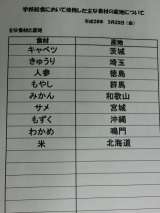 学校給食において使用した主な食材の産地について
平成28年 3月25日（金）
主な食材の産地
食材 産地
キャベツ 茨城
きゅうり 埼玉
人参 徳島
もやし 群馬
みかん 和歌山
サメ 宮城
もずく 沖縄
わかめ 鳴門
米 北海道